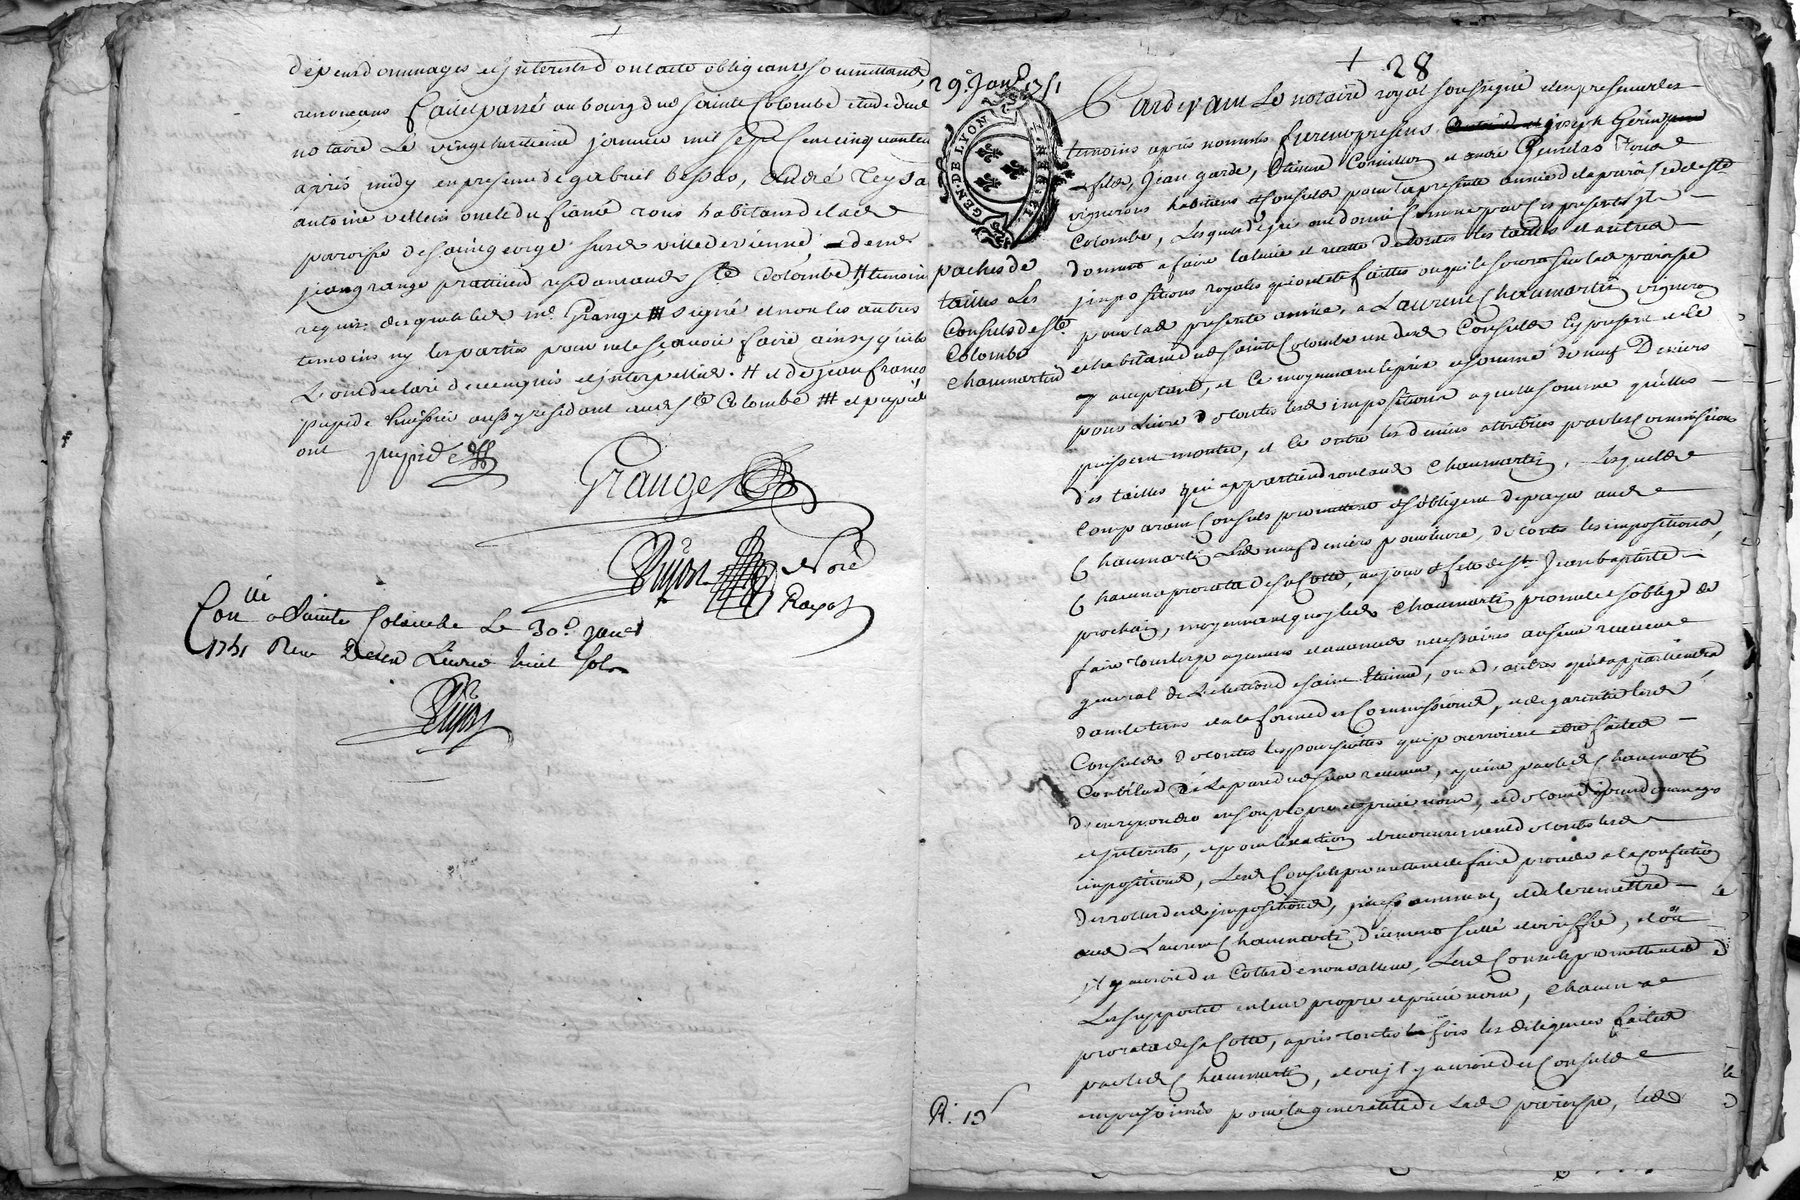 depens dommages et jnterests dont acte obligeants soumettans
renonçans fait et passé au bourg dud sainte Colombe etude dud
notaire Le vingt huitieme janvier mil sept Cent cinquante un
apres midy en presence de gabriel bessas, André Teyssa
antoine vellein
tous habitans de lade
paroisse de saint george sur de ville de vienne, de me
jean grange praticien residant aud ste Colombe # temoins
requis desquels led me Grange # signé et non les autres
temoins ny les parties pour ne le sçavoir faire ainsy qu'ils
L'ont declaré de ce enquis et jnterpellés. # et de jean franço
pupide huissier aussy residant aud ste Colombe ## et pupide
ont pupide
Grange
Dujon Nore
Royal
Con lé a Sainte Colombe Le 30e janer
1751 Reçu Livres huit sols
Dujon
+ 28
29e Janv 1751
GEN. DE LYON
paches de
tailles Les
Consuls de Ste
Colombe
Chaumartin
Pardevant Le notaire royal soussigné et en presence des
temoins apres nommés furent presens joseph Gerin
fils, Jean garde, Etienne Cornillon et andre Gendas Tous
vignerons habitans et Consuls pour la presente année de la paroisse de ste
Colombe, Lesquels de gré ont donné Comme par Ces presentes jls
donnent a faire la levée et recette de toutes les tailles et autres
jmpositions royales qui ont été faittes ou qui le seront sur lad paroisse
pour lade presente année, a Laurent Chaumartin vigneron
et habitant dud sainte Colombe un desd Consuls Cy present et Ce
acceptant, et Ce moyennant le prix et somme de neuf Deniers
pour Livre de toutes lesd impositions a quelle somme qu'elles
puissent monter, et Ce outre les deniers attribués par les Commissions
des tailles qui appartiendront aud Chaumartin, Lesquels
Comparant Consuls promettent et s'obligent de payer aud
Chaumartin Lesd neuf deniers pour livre, de toutes les impositions,
Chacun a prorata de sa Cotte, au jour et fete de st Jean baptiste
prochain, moyennant quoy led Chaumartin promet et s'oblige de
faire tous les payemens et avances necessaires au sieur receveur
general de L'election de saint Etienne, ou a autres qu'il appartiendra
dans le tems et a la forme des Commissions, et de garentir lesd
Consuls de toutes les poursuittes qui pourroient etre faites
Contr'eux de La part dud sieur receveur, a peine par led Chaumartin
d'en repondre en son propre et privé nom, et de tous depens dommages
et jnterets, et pour l'exaction et recouvrement de toutes lesd
impositions, Lesd Consuls promettent de faire proceder a la Confection
des rolles desd jmpositions, et de le remettre
aud Laurent Chaumartin duement scellé et veriffié, et ou
jl y auroit des Cottes de non valleur, Lesd Consuls promettent de
Les supporter en leur propre et privé nom, Chacun a
prorata de sa Cotte, apres toutes fois les diligences faites
par led Chaumartin, et ou jl y auroit des Consuls
emprisonnés pour la generalité de Lade paroisse, led
R. 13s